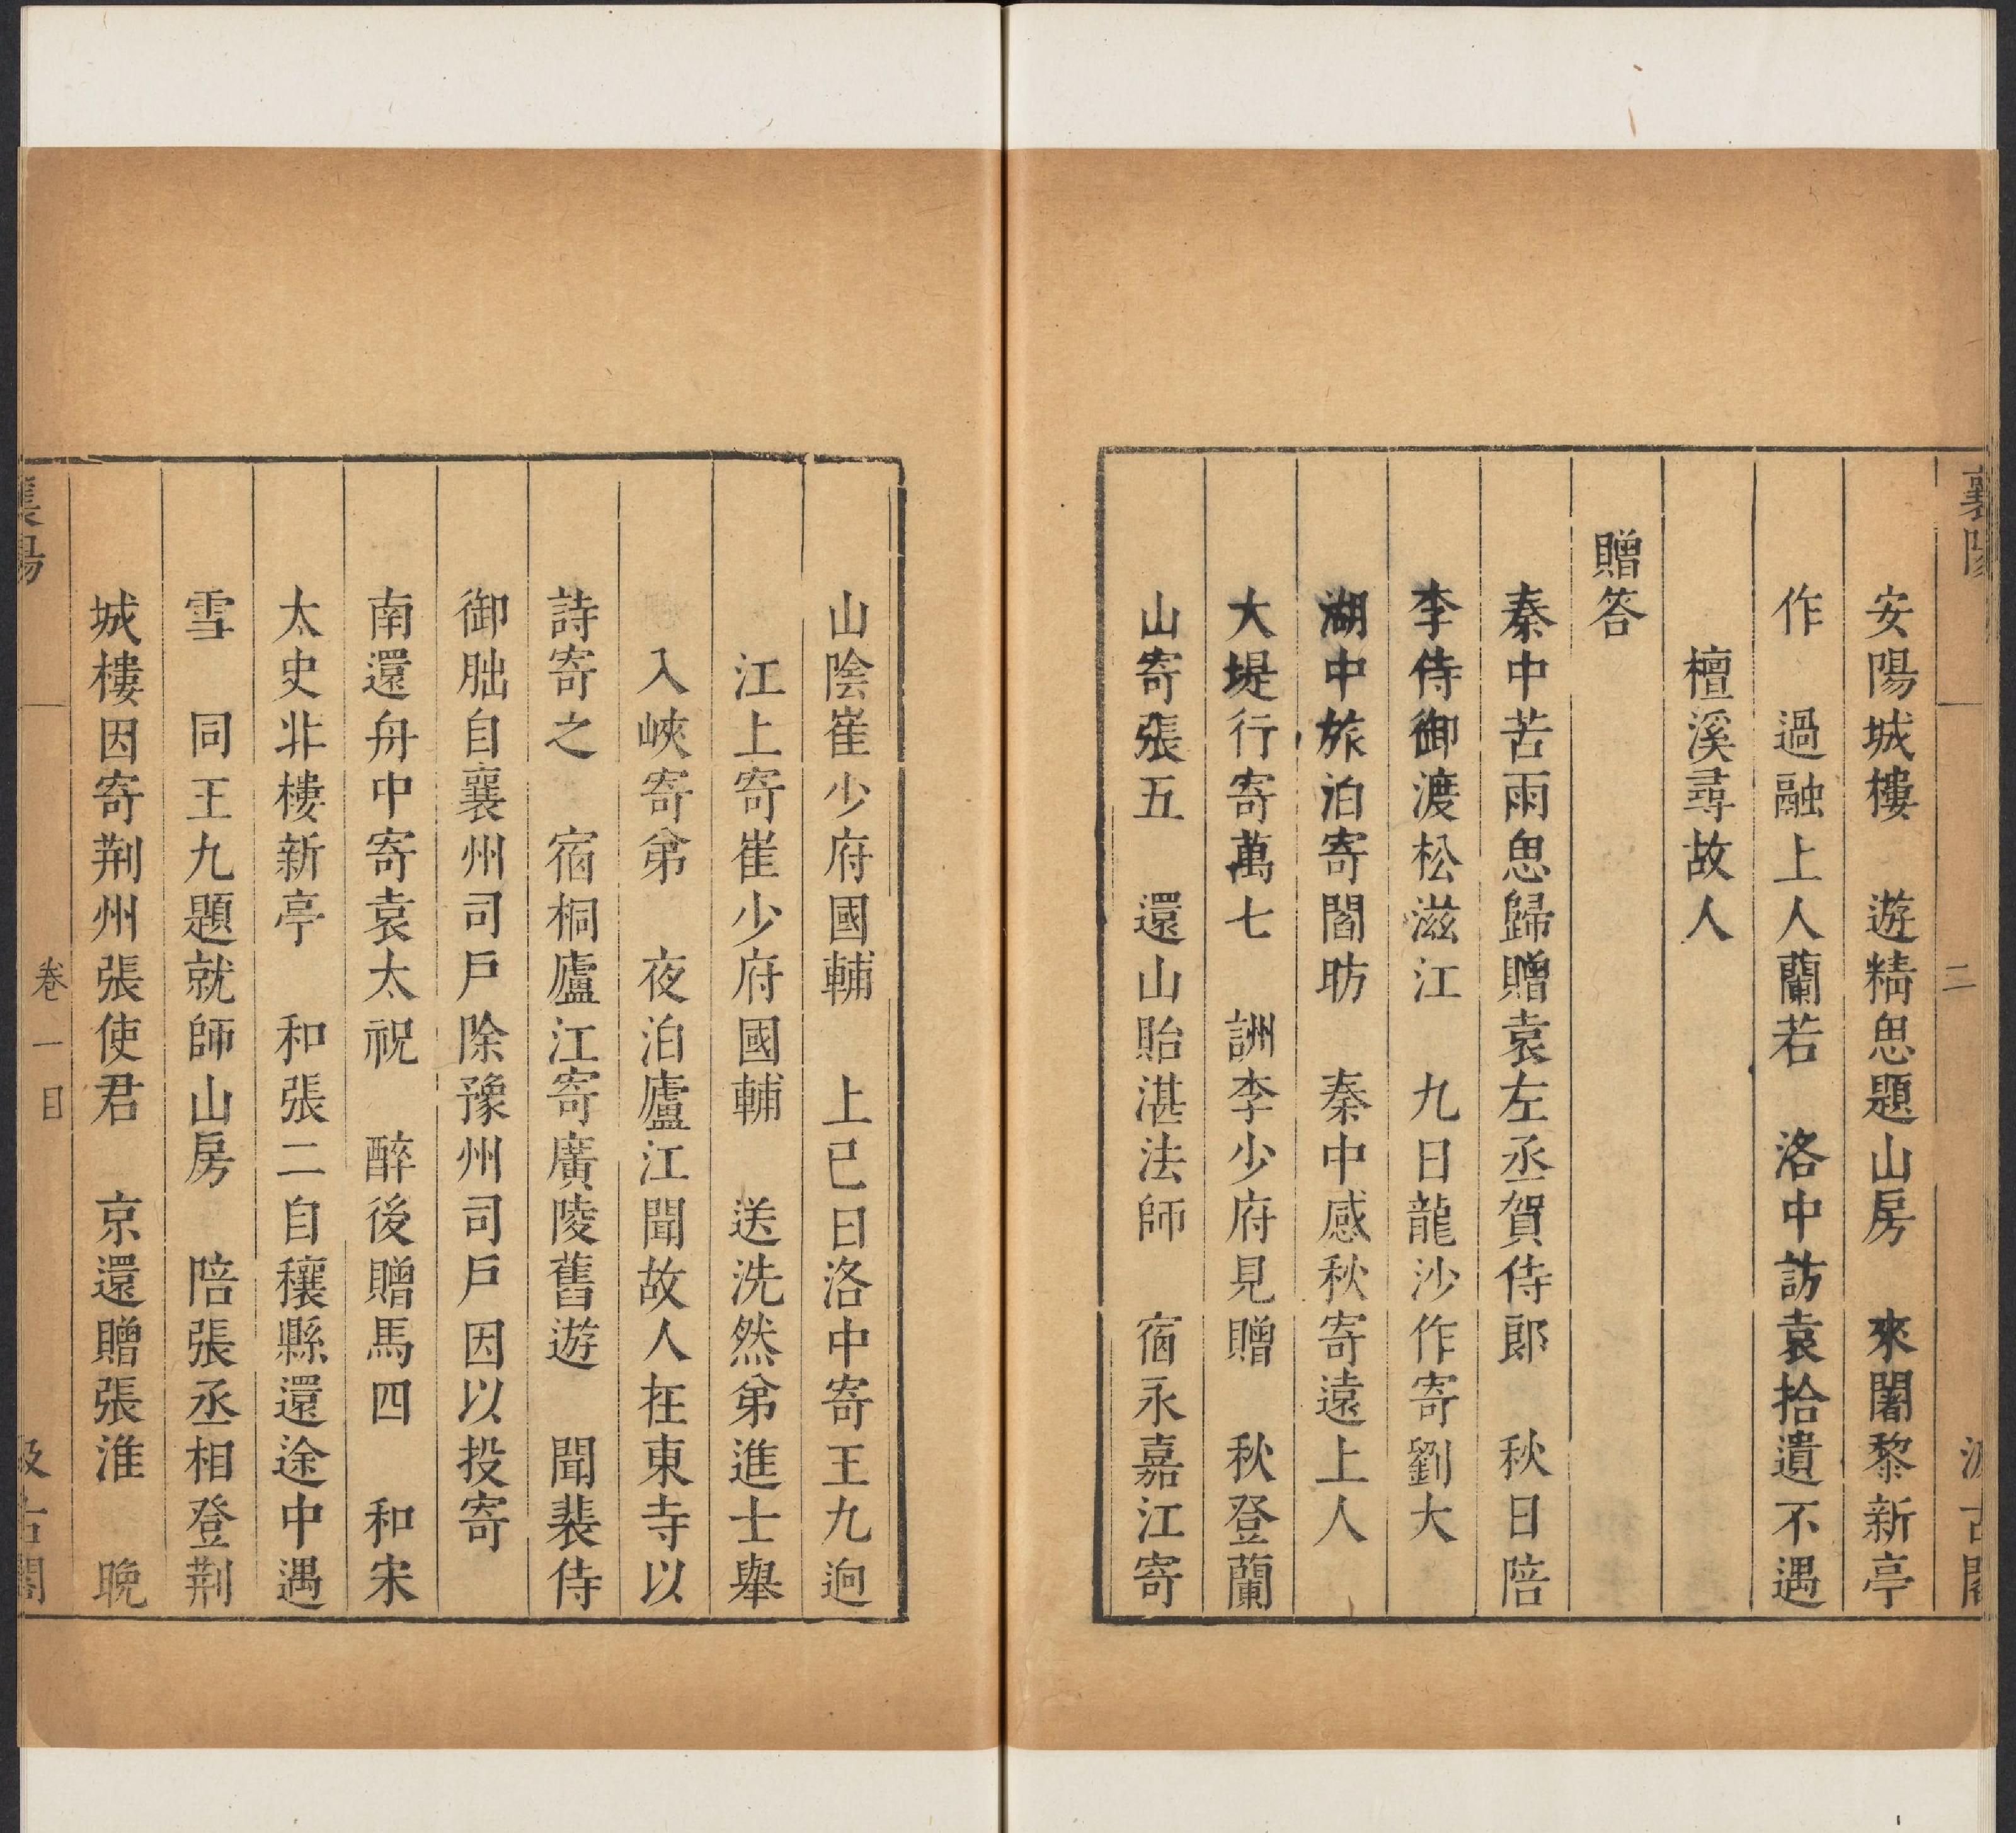 襄陽
二
汲古閣
安陽城樓　遊精思題山房　來闍黎新亭
作　過融上人蘭若　洛中訪袁拾遺不遇
檀溪尋故人
贈答
秦中苦雨思歸贈袁左丞賀侍郎　秋日陪
李侍御渡松滋江　九日龍沙作寄劉大
湖中旅泊寄閻昉　秦中感秋寄遠上人
大堤行寄萬七　詶李少府見贈　秋登蘭
山寄張五　還山貽湛法師　宿永嘉江寄
山陰崔少府國輔　上巳日洛中寄王九迥
江上寄崔少府國輔　送洗然弟進士舉
入峽寄弟　夜泊廬江聞故人在東寺以
詩寄之　宿桐廬江寄廣陵舊遊　聞裴侍
御朏自襄州司戶除豫州司戶因以投寄
南還舟中寄袁太祝　醉後贈馬四　和宋
太史北樓新亭　和張二自穰縣還途中遇
雪　同王九題就師山房　陪張丞相登荆
城樓因寄荆州張使君　京還贈張淮　晚
襄陽
卷一目
汲古閣